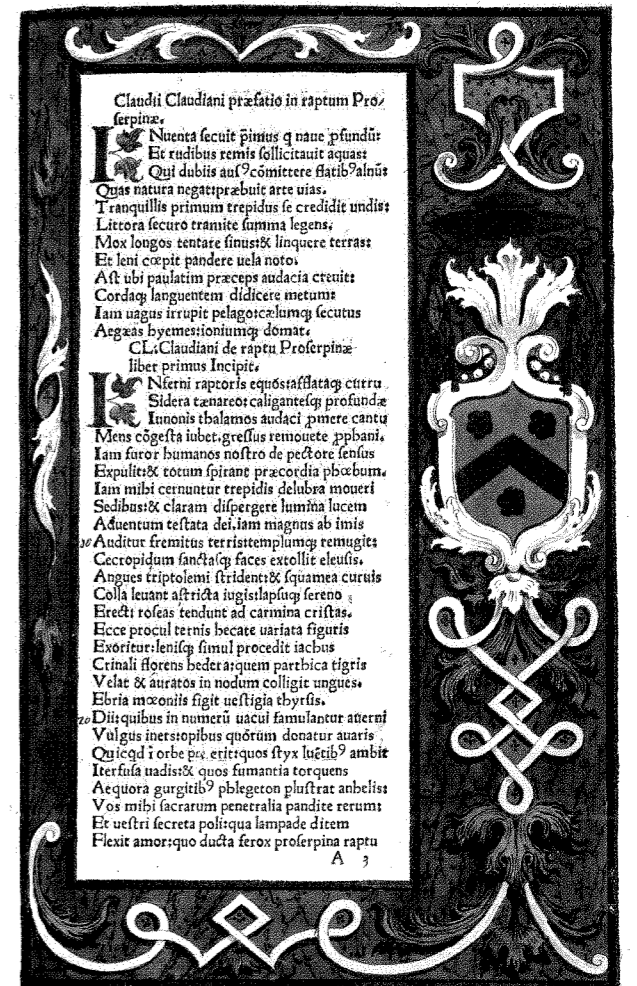 Claudii Claudiani præfatio in raptum Pro/
serpinæ.
INuenta secuit p̄imus q naue ꝓfundū:
Et rudibus remis sollicitauit aquas:
Qui dubiis ausꝰcōmittere flatibꝰalnū:
Quas natura negat:præbuit arte uias.
Tranquillis primum trepidus se credidit undis:
Littora securo tramite summa legens.
Mox longos tentare sinus:& linquere terras:
Et leni cœpit pandere uela noto.
Ast ubi paulatim præceps audacia creuit:
Cordaꝗ languentem didicere metum:
Iam uagus irrupit pelago:cælumꝗ secutus
Aegæas hyemes:ioniumꝗ domat.
CL:Claudiani de raptu Proserpinæ
liber primus Incipit.
INferni raptoris equos:afflataꝗ curru
Sidera tænareo:caligantesꝗ profundæ
Iunonis thalamos audaci ꝓmere cantu
Mens cōgesta iubet.gressus remouete ꝓphani.
Iam furor humanos nostro de pectore sensus
Expulit:& totum spirant præcordia phœbum.
Iam mihi cernuntur trepidis delubra moueri
Sedibus:& claram dispergere lumina lucem
Aduentum testata dei.iam magnus ab imis
Auditur fremitus terris:templumꝗ remugit:
Cecropidum sanctasꝗ faces extollit eleusis.
Angues triptolemi strident:& squamea curuis
Colla leuant astricta iugis:lapsuꝗ sereno
Erecti roseas tendunt ad carmina cristas.
Ecce procul ternis hecate uariata figuris
Exoritur:lenisꝗ simul procedit iacbus
Crinali florens hedera:quem parthica tigris
Velat & auratos in nodum colligit ungues.
Ebria mœoniis figit uestigia thyrsis.
20 Dii:quibus in numerū uacui famulantur auerni
Vulgus iners:opibus quorum donatur auaris
Quicqd ī orbe erit:quos styx luētibꝰ ambit
Iterfusa uadis:& quos fumantia torquens
Aequora gurgitibꝰ phlegeton plustrat anhelis:
Vos mihi sacrarum penetralia pandite rerum:
Et uestri secreta poli:qua lampade ditem
Flexit amor:quo ducta ferox proserpina raptu
A 3